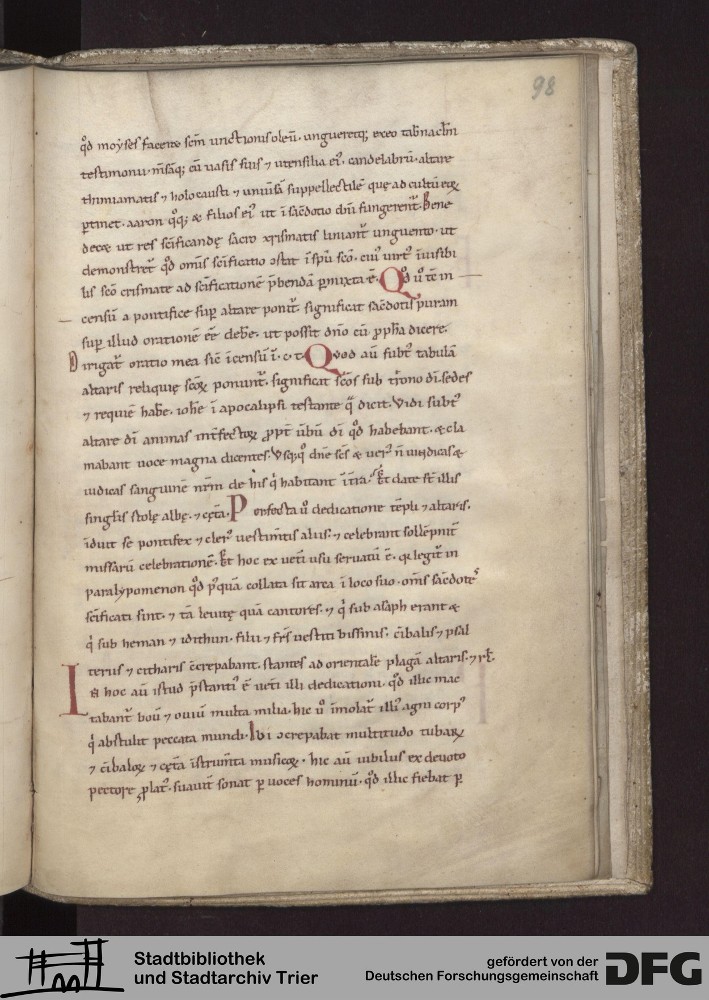 98
qd̄ moyses facere sc̄m unctionis oleū. ungueretq; ex eo tab̄nac̄lm
testimonii. m̄sāq; cū uasis suis ⁊ utensilia ei᷒. candelabrū. altare
thimiamatis ⁊ holocausti ⁊ uniūsā suppellectilē quę ad cultū eoꝝ
ꝑtinet. aaron q̊q; & filios ei᷒ ut ī sac̄dotio dn̄i fungerent᷒. Bene
decæ ut res sc̄ificandę sacro xpismatis liniant᷒ unguento. ut
demonstret᷒ qd̄ om̄is sc̄ificatio ɔstat ī sp̄u sc̄o. cui᷒ uirt᷒ īuisibi
lis sc̄o crismate ad sc̄ificationē p̄bendā ꝑmixta ē. Qd̊ ū tē in
censū a pontifice suꝑ altare ponit᷒. significat sac̄dotis puram
suꝑ illud orationē eē debe. ut possit dn̄o cū ꝓph̄a dicere.
Dirigat᷒ oratio mea sic̄ īcensū ī. c. t. Quod aū subt᷒ tabulā
altaris reliquię sc̄oꝝ ponunt᷒. significat sc̄os sub trono dī. sedes
⁊ requiē habe. ioh̄e ī apocalipsi testante q̄ dicit. Vidi subt᷒
altare dī animas int̄fectoꝝ ꝓpt̄ ūbū dī qd̄ habebant. & cla
mabant uoce magna dicentes. Vsq;q̊ dn̄e sc̄s & uer᷒ n̄ uindicas &
iudicas sanguinē nr̄m de his q̄ habitant ī tr̄a. Et date st̄ illis
singl̄is stolę albę. ⁊ cęt̄a. Perfecta ū dedicatione tēpli ⁊ altaris.
īduit se pontifex ⁊ cler᷒ uestim̄tis aliis. ⁊ celebrant sollēpnit̄
missarū celebrationē. Et hoc ex uet̄i usu seruatū ē. q̄ legit᷒ in
paralypomenon qd̄ pꝯquā collata sit arca ī loco suo. om̄s sac̄dotes
sc̄ificati sint. ⁊ tā leuitę quā cantores. ⁊ q̄ sub asaph erant &
q̄ sub heman ⁊ idithun. filii ⁊ fr̄s uestiti bissinis. cībalis ⁊ psal
teriis ⁊ citharis c̄crepabant. stantes ad orientalē plagā altaris. ⁊ rl̄.
In hoc aū istud p̄stanti᷒ ē uet̄i illi dedicationi. qd̄ illic mac
tabant᷒ boū ⁊ ouiū multa milia. hic ū īmolat᷒ illi᷒ agni corp᷒
q̄ abstulit peccata mundi. Ibi ɔcrepabat multitudo tubaꝝ
⁊ cībaloꝝ ⁊ cęt̄a īstrum̄ta musicoꝝ. hic aū iubilus ex deuoto
pectore ꝓlat᷒. suauit̄ sonat ꝑ uoces hominū. qd̄ illic fiebat ꝑ
Stadtbibliothek
und Stadtarchiv Trier
gefördert von der
Deutschen Forschungsgemeinschaft
DFG